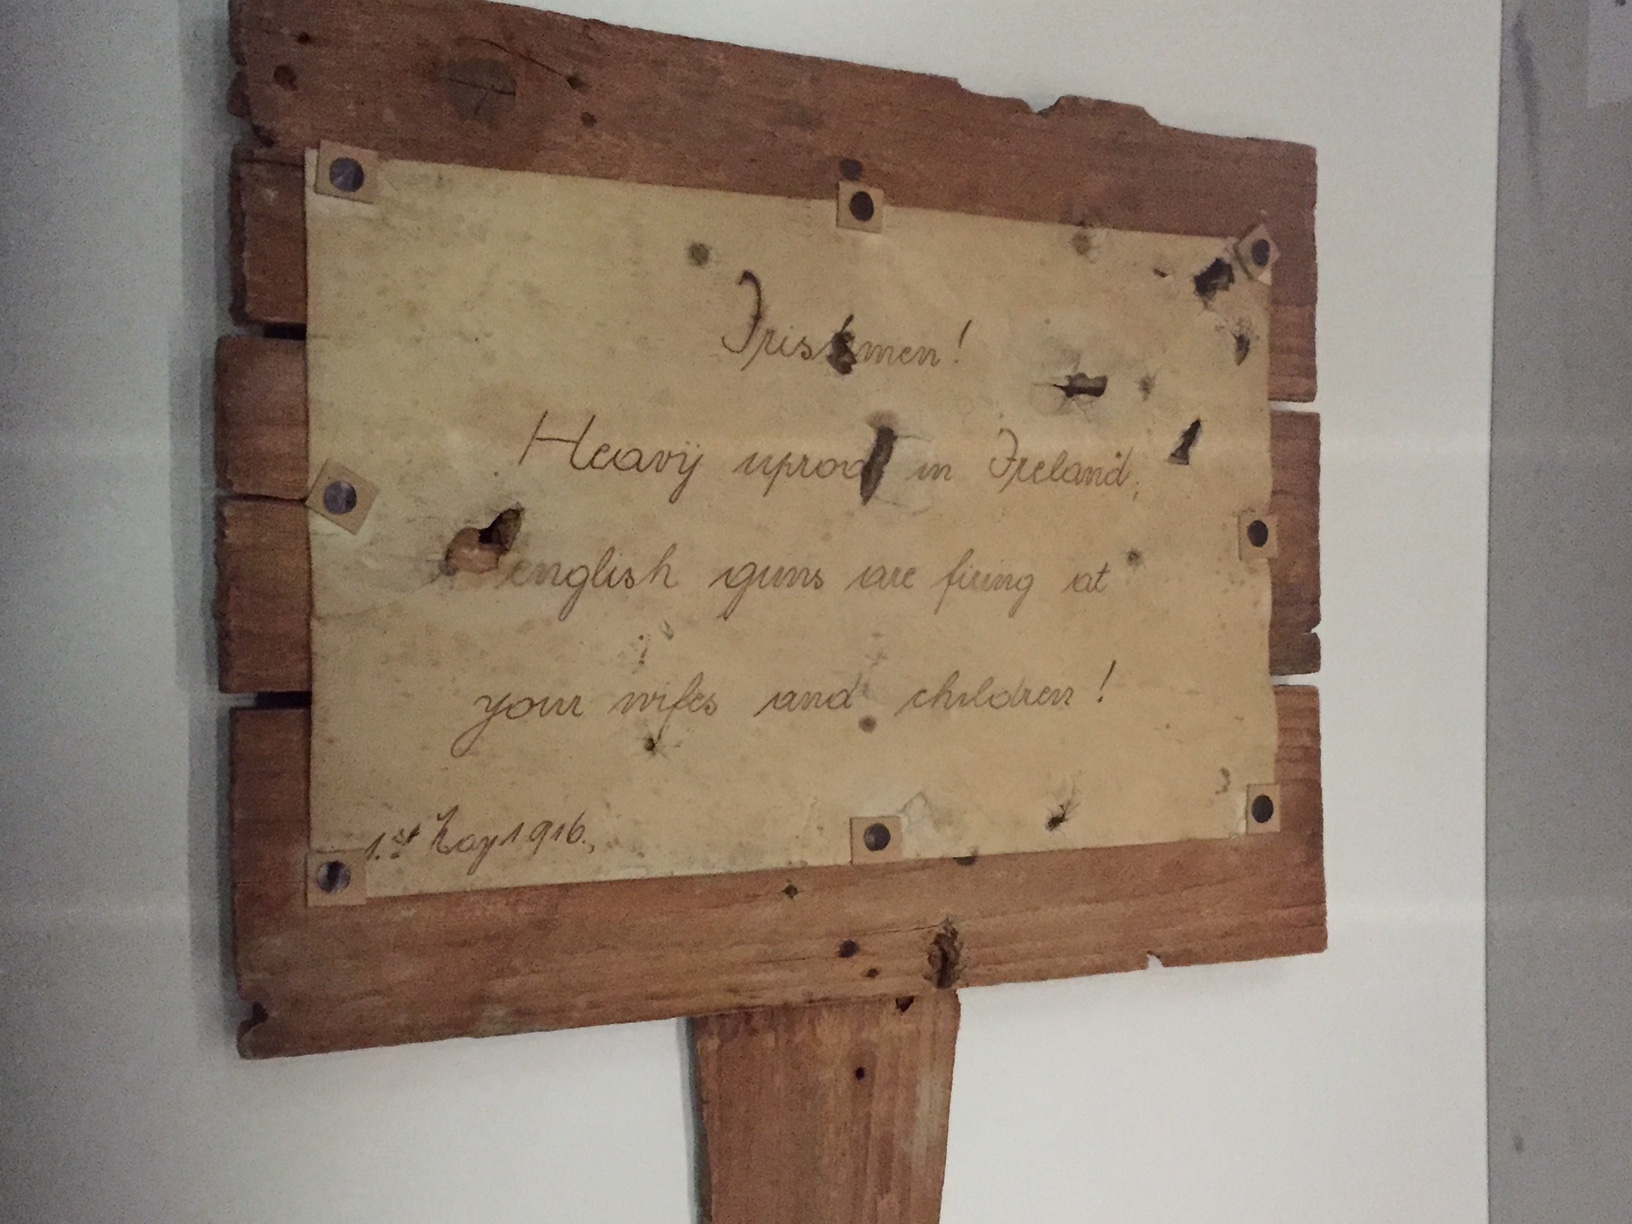 Irishmen!
Heavÿ uproar in Ireland,
english guns are firing at
your wifes and children!
1.st May 1916.,